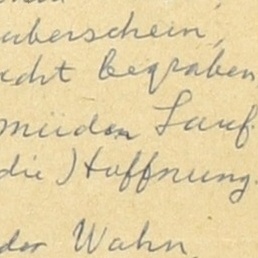 auberschein,
icht begraben
müden Lauf
die) Hoffnung.
der Wahn